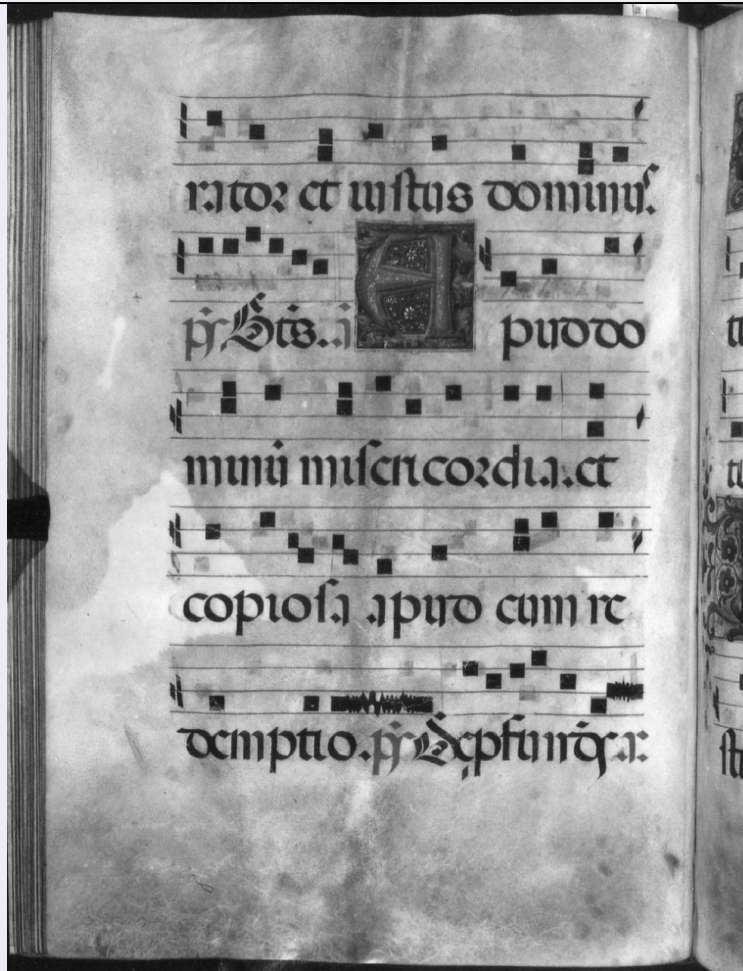 rator et iustus dominus.
ps̃ Btũs. ã Apud do
minũ misericordia. et
copiosa apud eum re
demptio. ps̃ De pfũndis. a: